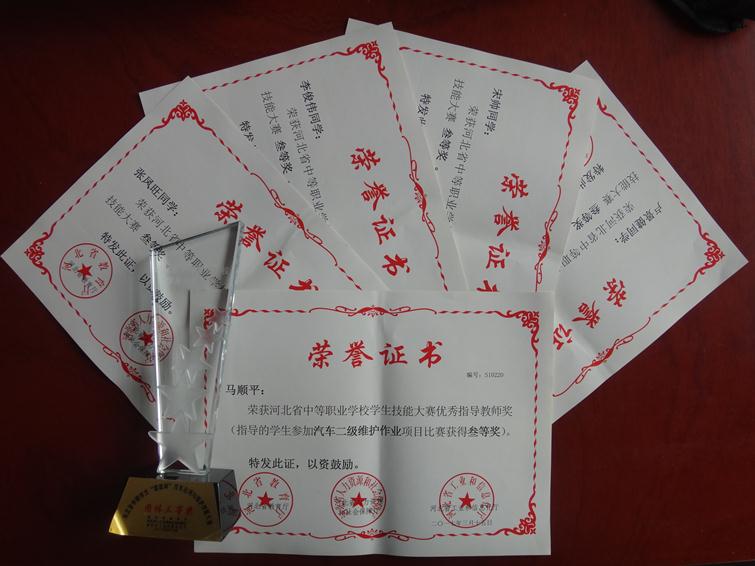 张凤旺同学：
荣获河北省中等职业学
技能大赛 叁等奖。
特发此证，以资鼓励。
荣誉证书
李俊伟同学：
荣获河北省中等职业学
技能大赛 叁等奖
特发
荣誉证书
宋帅同学：
荣获河北省中等职业学
技能大赛 叁等奖。
特发
荣誉证书
同学：
荣获河北省中等职
技能大赛 叁等奖
特发
荣誉
荣誉证书
编号：S10220
马顺平：
荣获河北省中等职业学校学生技能大赛优秀指导教师奖
（指导的学生参加汽车二级维护作业项目比赛获得叁等奖）。
特发此证，以资鼓励。
河北省教育厅
河北省工业和信息化厅
二〇一七年三月十五日
团体三等奖